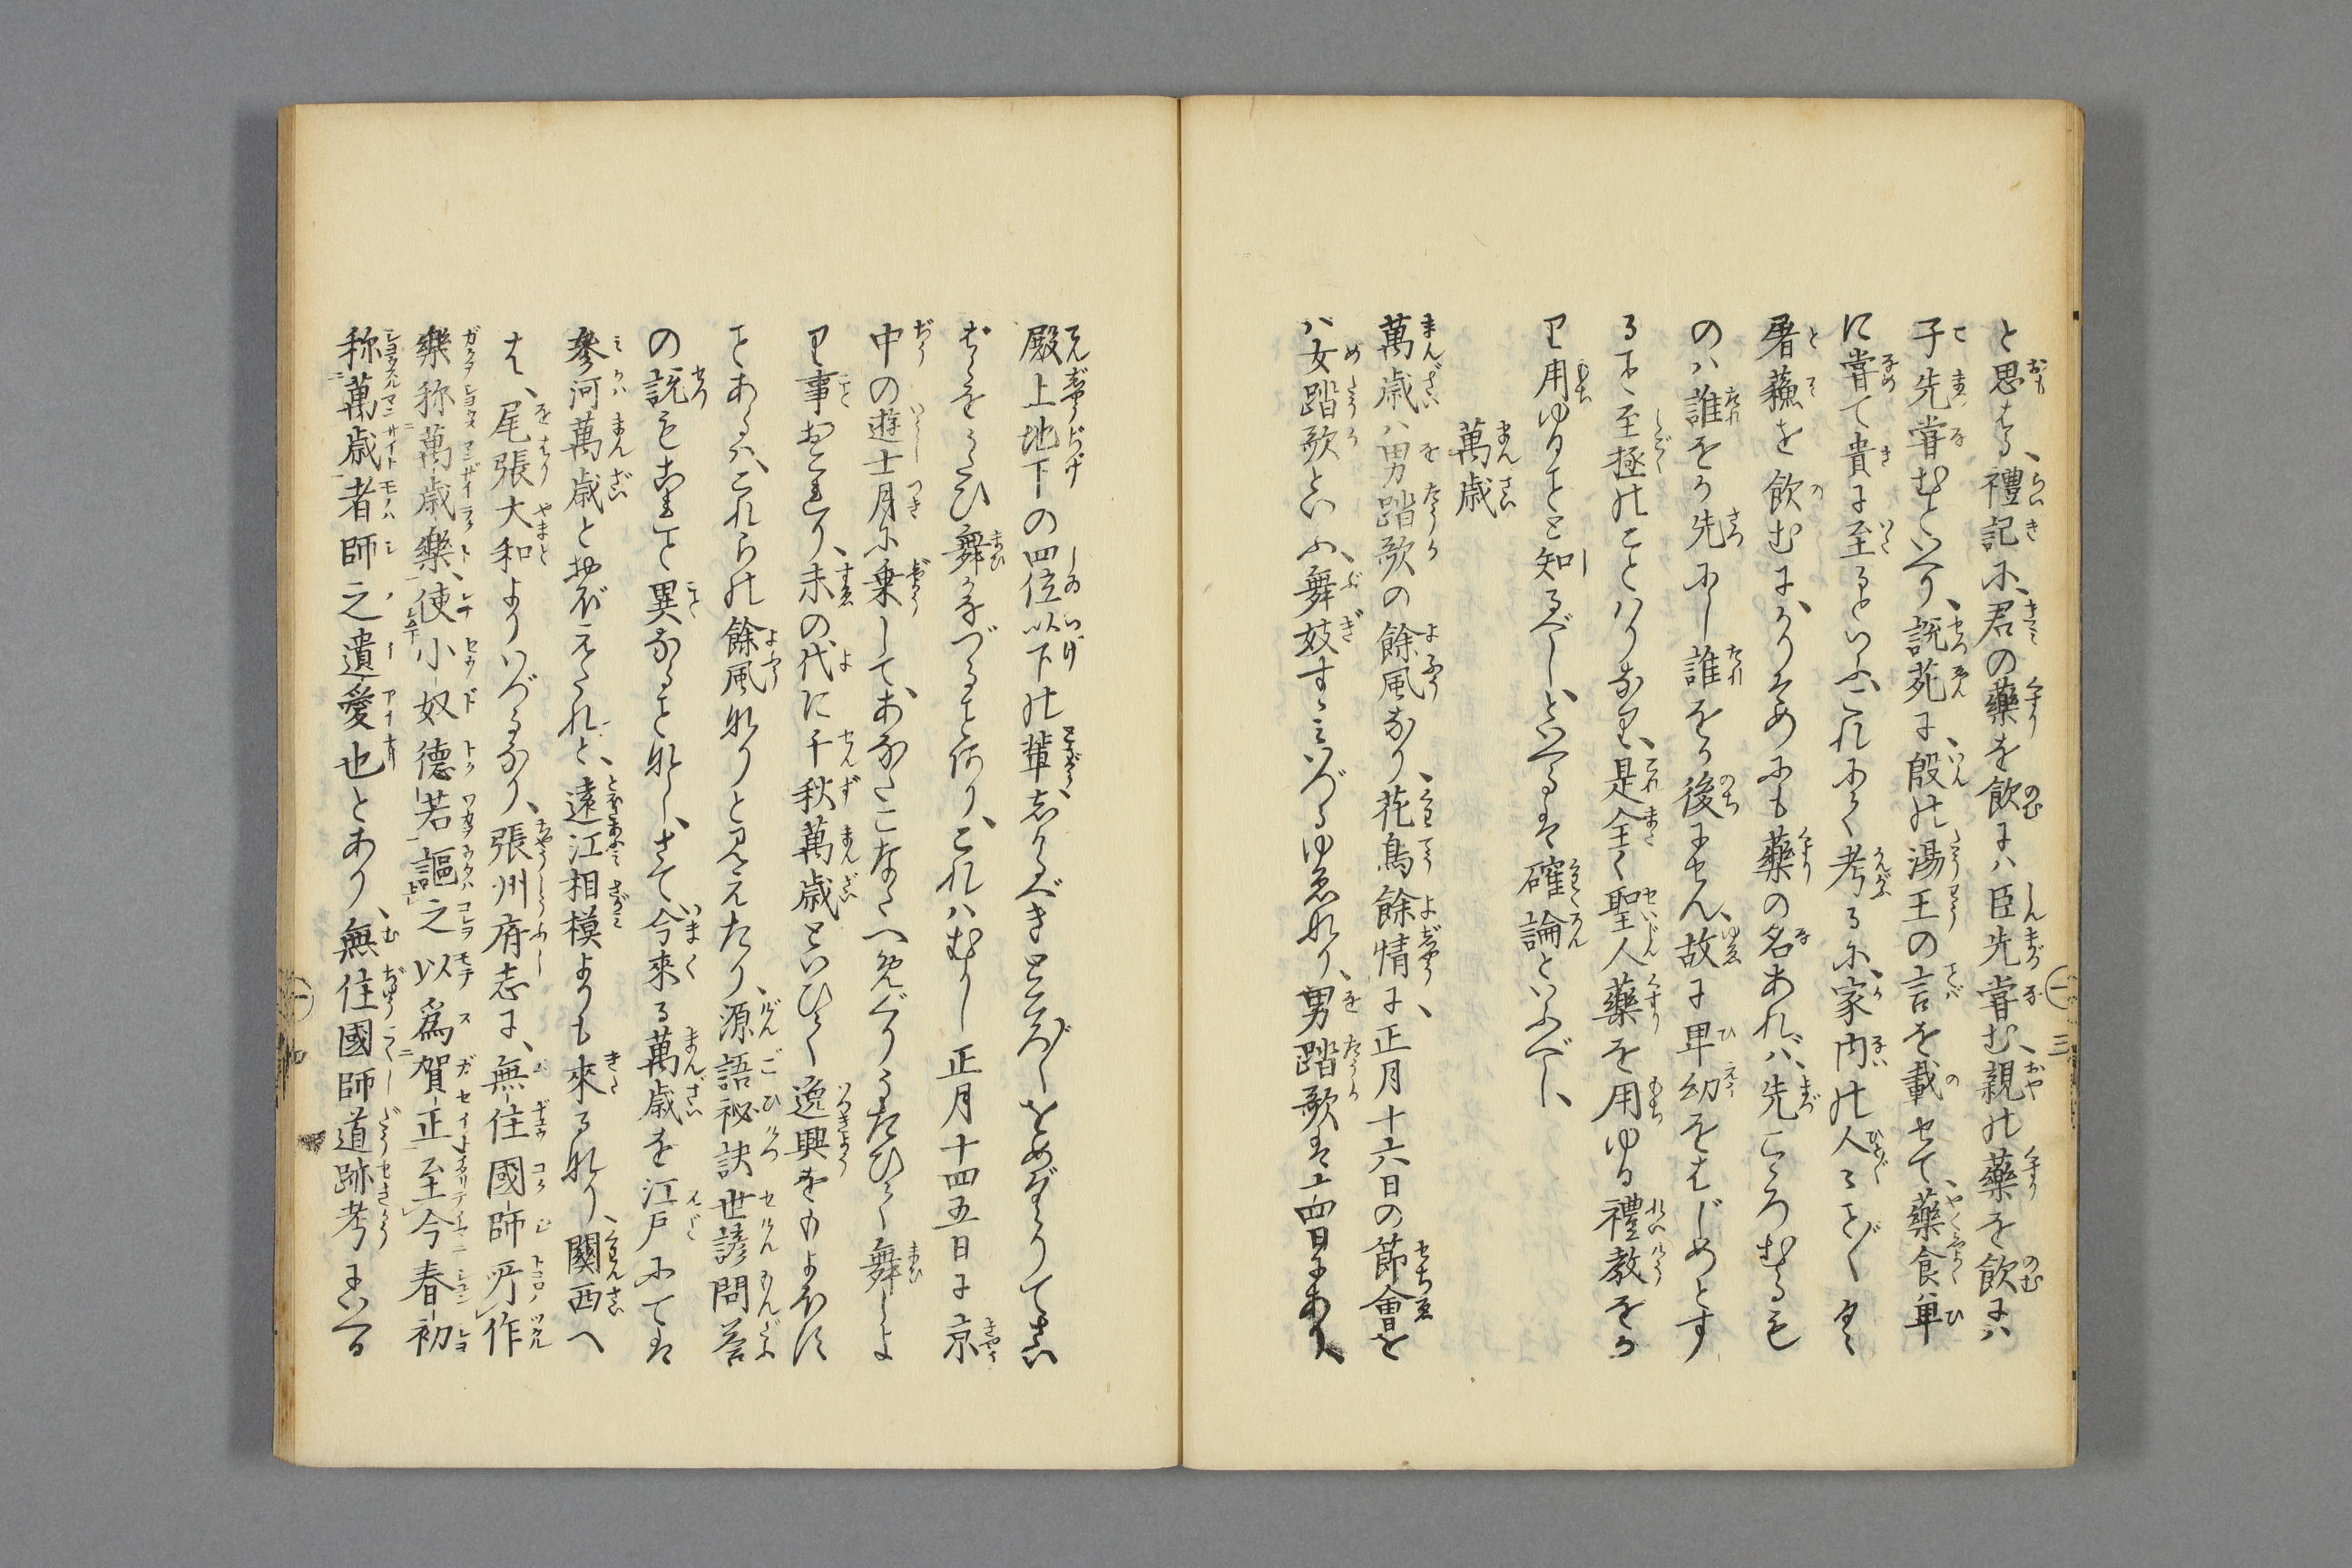 と思はる、禮記に、君の藥を飲には臣先嘗む、親の藥を飲には
子先嘗むといへり、説苑に、殷の湯王の言を載せて、藥食卑
に嘗て貴に至るといふ、これにより考るに、家内の人々ことごとく
屠蘓を飲むに、かりそめにも藥の名あれば、先こゝろむるも
のハ誰をか先にし誰をか後にせん、故に卑幼をはじめとす
る事至極のことハりなり、是全く聖人藥を用ゆる禮教をか
り用ゆることと知るべし、といへるは確論といふべし、
萬歳
萬歳ハ男踏歌の餘風なり、花鳥餘情に、正月十六日の節會を
バ女踏歌といふ、舞妓すゝみいづるゆゑなり、男踏歌は十四日にあり、
殿上地下の四位以下の輩
をうたひ舞かなづること有り、これハむかし正月十四五日に京
中の遊士月に乗じて、あなたこなたへめぐりうたひて舞しよ
り事おこれり、末の代に千秋萬歳といひて逸興をもよほす
とあるハ、これらの餘風なりと見えたり、源語祕訣世諺問答
の説もおなじこと異なることなし、さて今來る萬歳を江戸にては
參河萬歳とおぼえたれと、遠江相模よりも來るなり、關西へ
は、尾張大和よりいづるなり、張州府志に、無住國師所作
樂称萬歳樂、使小奴德若謳之以爲賀正至今春初
称萬歳者師之遺愛也とあり、無住國師道跡考にいへる
一 三
一 四